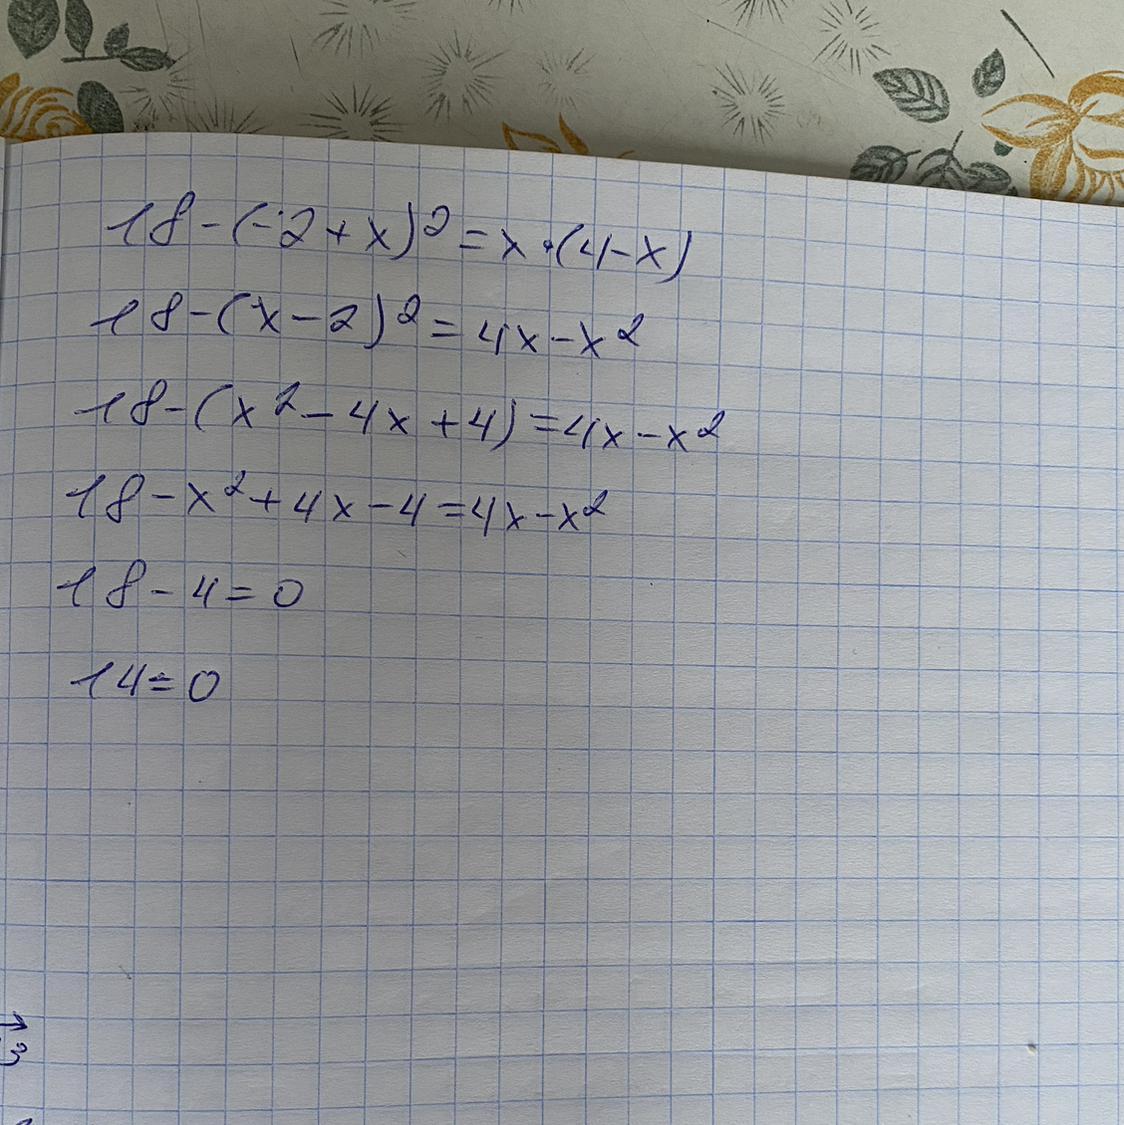 18-(-2+x)²=x·(4-x)
18-(x-2)²=4x-x²
18-(x²-4x+4)=4x-x²
18-x²+4x-4=4x-x²
18-4=0
14=0